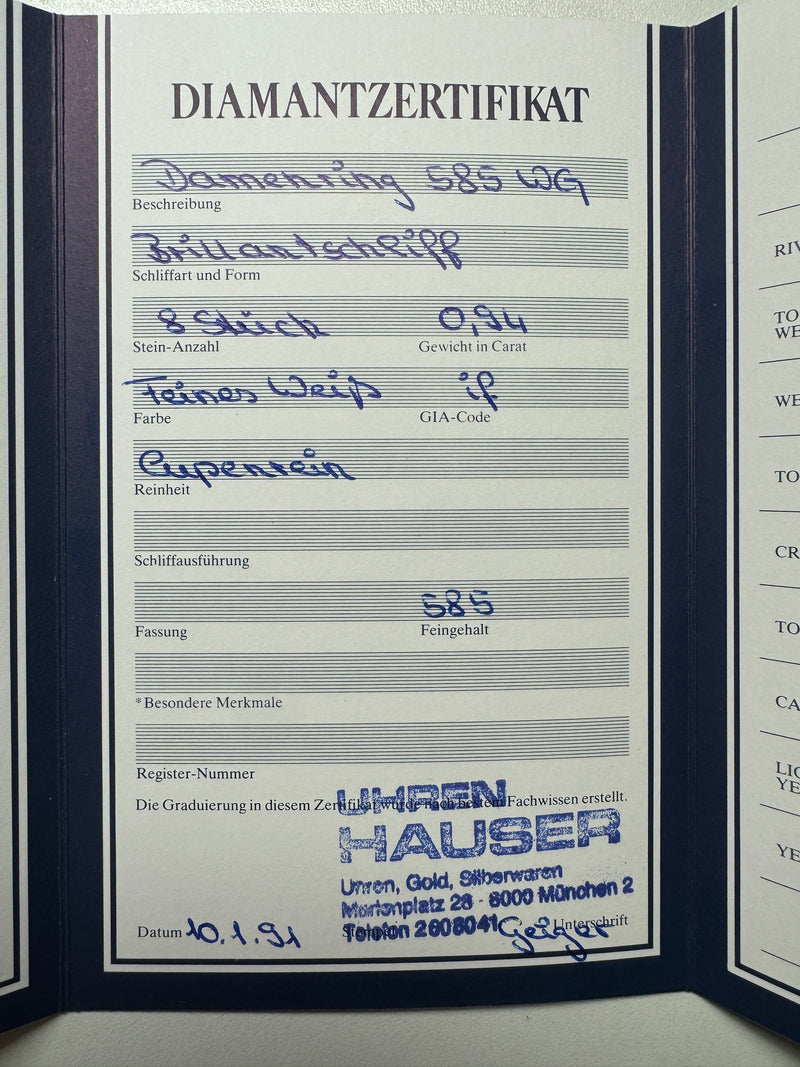 DIAMANTZERTIFIKAT
Damenring 585 WG
Beschreibung
Brillantschliff
Schliffart und Form
8 Stück 0,94
Stein-Anzahl Gewicht in Carat
Feines Weiß if
Farbe GIA-Code
Lupenrein
Reinheit
Schliffausführung
585
Fassung Feingehalt
*Besondere Merkmale
Register-Nummer
Die Graduierung in diesem Zertifikat wurde nach bestem Fachwissen erstellt.
UHREN
HAUSER
Uhren, Gold, Silberwaren
Marienplatz 28 - 8000 München 2
Telefon 2608041
Datum 10.1.91 Stempel Geiger Unterschrift
RIV
TO
WE
WE
TO
CR
TO
CA
LIG
YE
YE